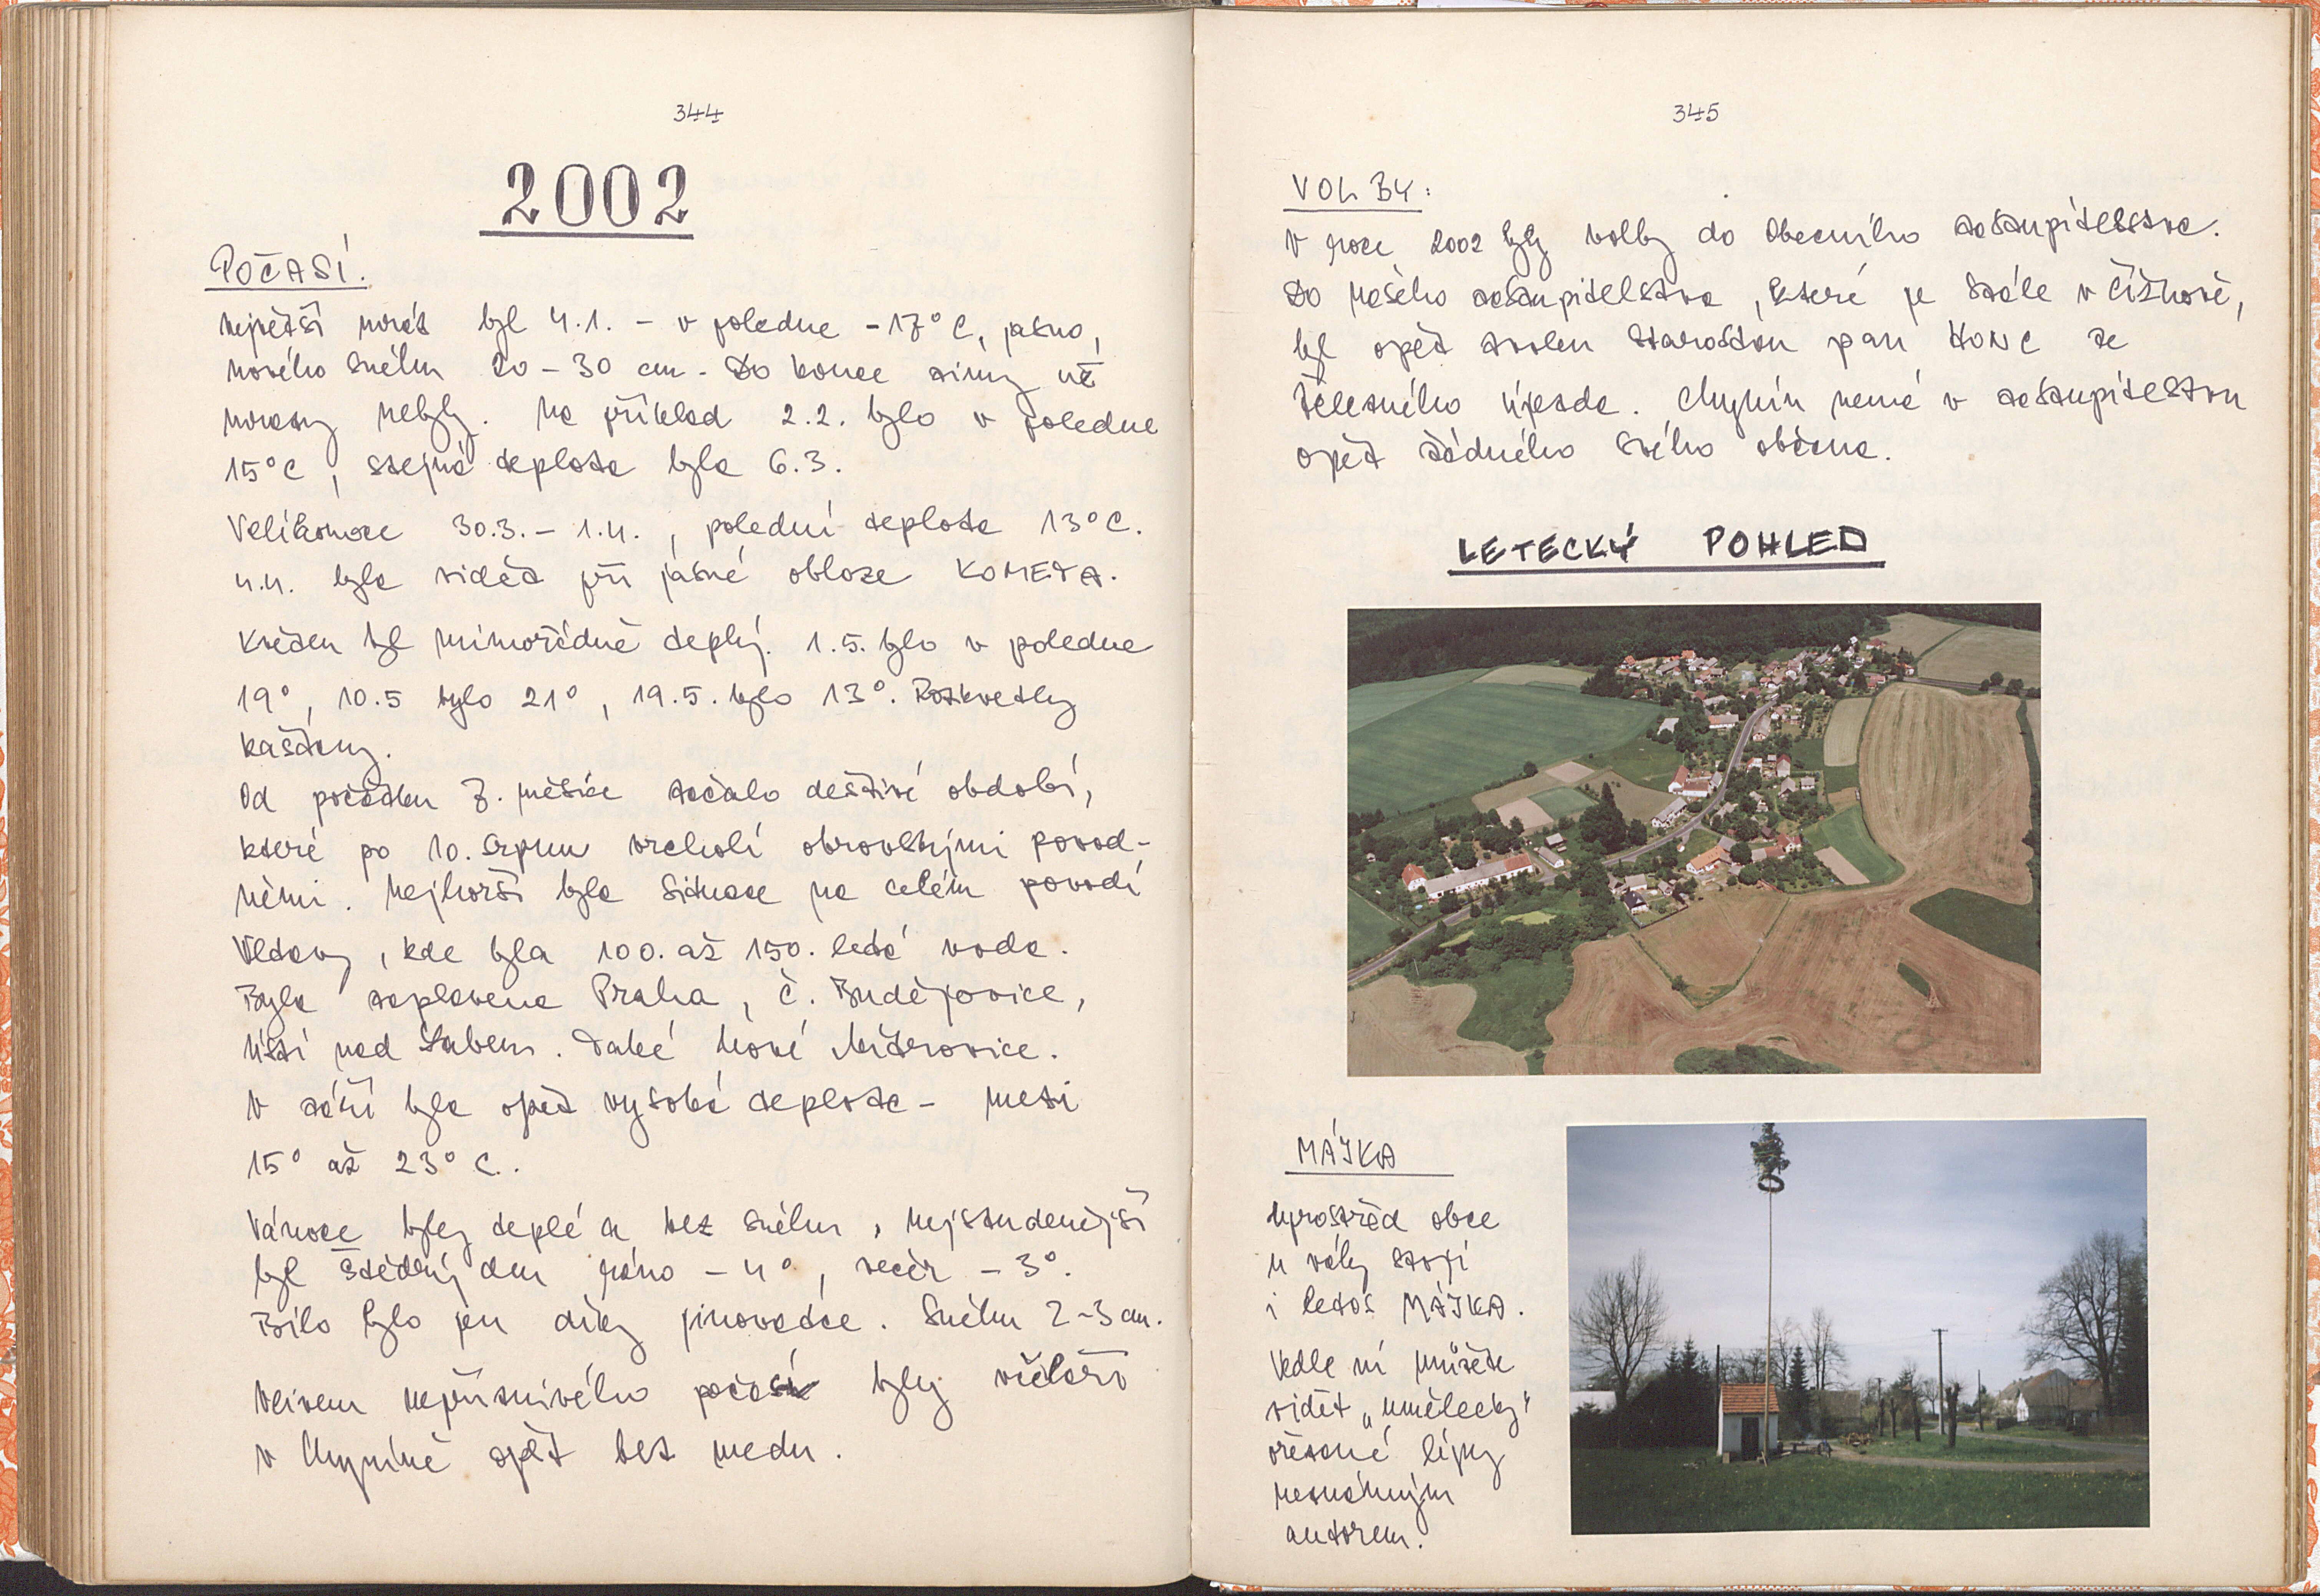 344
2002
POČASÍ.
Největší mráz byl 4.1. - v poledne -17°C, jasno,
nového sněhu 20-30 cm. Do konce zimy už
mrazy nebyly. Na příklad 2.2. bylo v poledne
15°C, stejná teplota byla 6.3.
Velikonoce 30.3.- 1.4., polední teplota 13°C.
4.4. byla vidět při jasné obloze KOMETA.
Květen byl mimořádně teplý. 1.5. bylo v poledne
19°, 10.5 bylo 21°, 19.5. bylo 13°. Rozkvetly
kaštany.
Od počátku 7. měsíce začalo deštivé období,
které po 10. srpnu vrcholí obrovskými povod-
němi. Nejhorší byla situace na celém povodí
Vltavy, kde byla 100. až 150. letá voda.
Byla zaplavena Praha, Č. Budějovice,
Ústí nad Labem. Také Nové Mitrovice.
V září byla opět vysoká teplota - mezi
15° až 23° C.
Vánoce byly teplé a bez sněhu, nejstudenější
byl Štědrý den ráno - 4°, večer - 3°.
Bílo bylo jen díky jinovatce. Sněhu 2-3 cm.
Vlivem nepříznivého počasí byly včelaři
v Chyníně opět bez medu.
345
VOLBY:
V roce 2002 byly volby do Obecního zastupitelstva.
Do našeho zastupitelstva, které je stále v Čížkově,
byl opět zvolen starostou pan HONC ze
Železného Újezda. Chynín nemá v zastupitelstvu
opět žádného svého občana.
LETECKÝ POHLED
MÁJKA
Uprostřed obce
u váhy stojí
i letos MÁJKA.
Vedle ní můžete
vidět „umělecky"
ořezané lípy
neznámým
autorem.